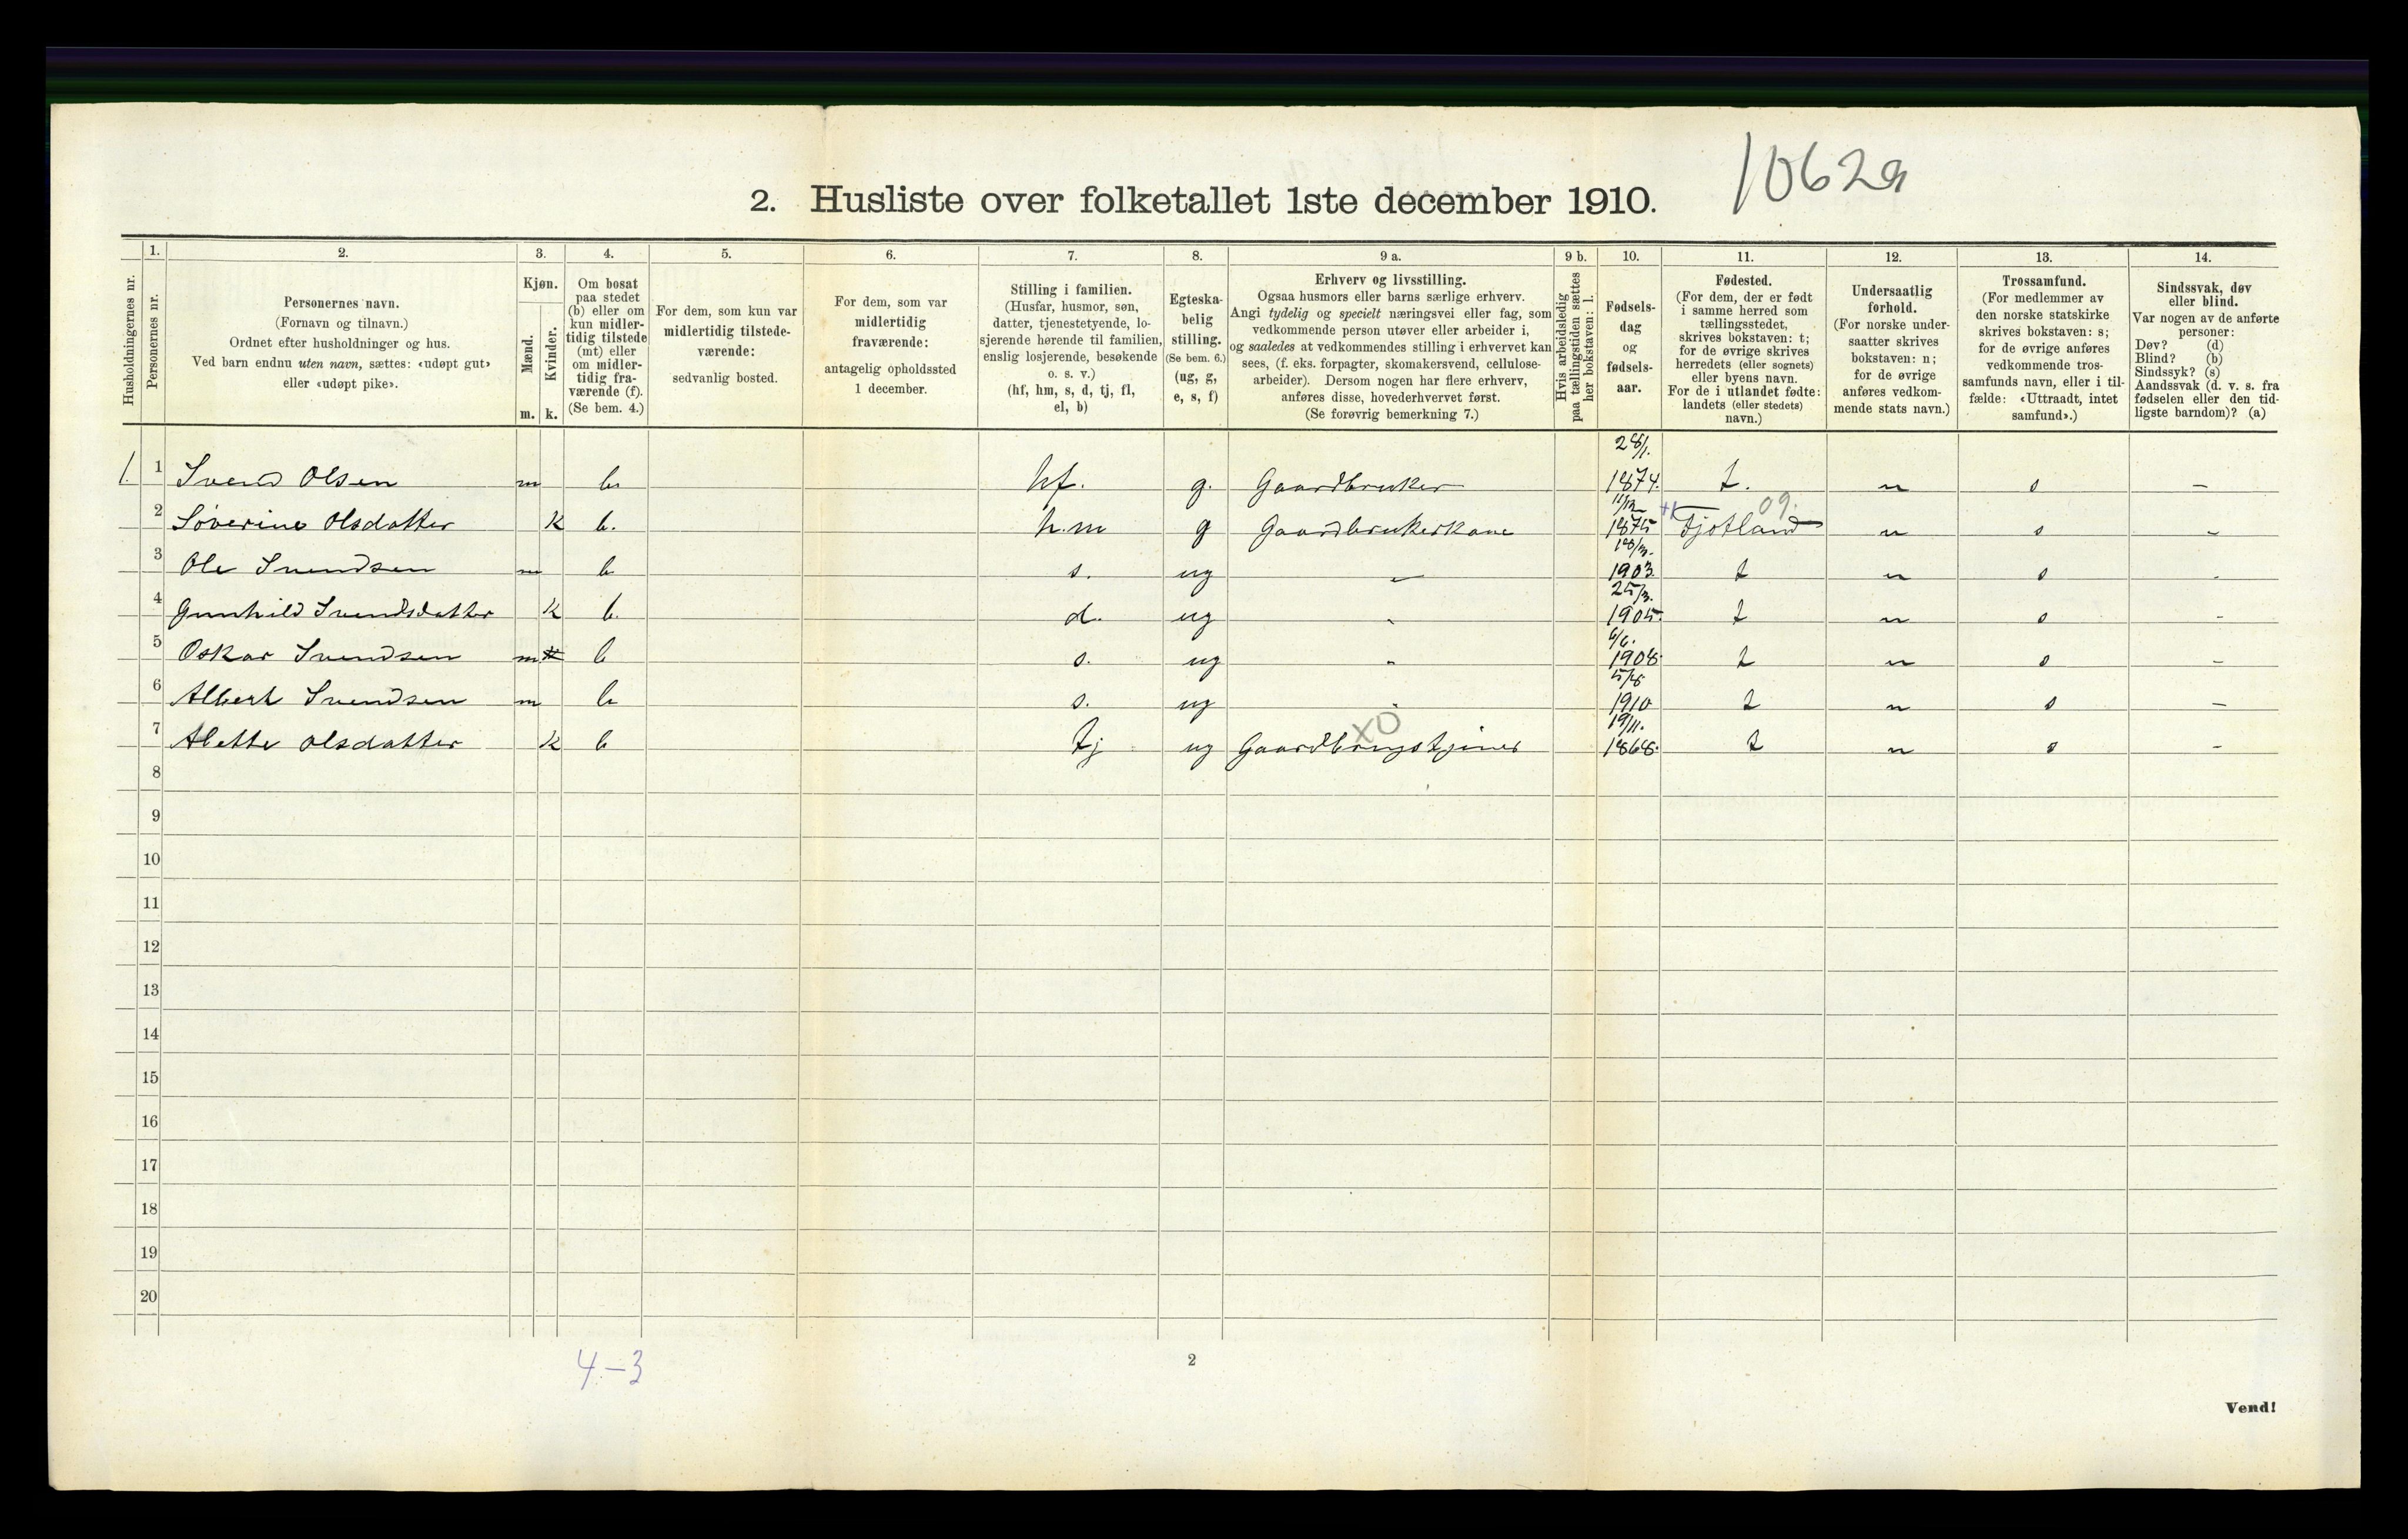 10629
2. Husliste over folketallet 1ste december 1910.
Husholdningernes nr.
1.
Personernes nr.
2.
Personernes navn.
(Fornavn og tilnavn.)
Ordnet efter husholdninger og hus.
Ved barn endnu uten navn, sættes: «udøpt gut»
eller «udøpt pike».
3.
Kjøn.
Mænd.
Kvinder.
m. k.
4.
Om bosat
paa stedet
(b) eller om
kun midler-
tidig tilstede
(mt) eller
om midler-
tidig fra-
værende (f).
(Se bem. 4.)
5.
For dem, som kun var
midlertidig tilstede-
værende:
sedvanlig bosted.
6.
For dem, som var
midlertidig
fraværende:
antagelig opholdssted
1 december.
7.
Stilling i familien.
(Husfar, husmor, søn,
datter, tjenestetyende, lo-
sjerende hørende til familien,
enslig losjerende, besøkende
o. s. v.)
(hf, hm, s, d, tj, fl,
el, b)
8.
Egteska-
belig
stilling.
(Se bem. 6.)
(ug, g,
e, s, f)
9 a.
Erhverv og livsstilling.
Ogsaa husmors eller barns særlige erhverv.
Angi tydelig og specielt næringsvei eller fag, som
vedkommende person utøver eller arbeider i,
og saaledes at vedkommendes stilling i erhvervet kan
sees, (f. eks. forpagter, skomakersvend, cellulose-
arbeider). Dersom nogen har flere erhverv,
anføres disse, hovederhvervet først.
(Se forøvrig bemerkning 7.)
9 b.
Hvis arbeidsledig
paa tællingstiden sættes
her bokstaven: l.
10.
Fødsels-
dag
og
fødsels-
aar.
11.
Fødested.
(For dem, der er født
i samme herred som
tællingsstedet,
skrives bokstaven: t;
for de øvrige skrives
herredets (eller sognets)
eller byens navn.
For de i utlandet fødte:
landets (eller stedets)
navn.)
12.
Undersaatlig
forhold.
(For norske under-
saatter skrives
bokstaven: n;
for de øvrige
anføres vedkom-
mende stats navn.)
13.
Trossamfund.
(For medlemmer av
den norske statskirke
skrives bokstaven: s;
for de øvrige anføres
vedkommende tros-
samfunds navn, eller i til-
fælde: «Uttraadt, intet
samfund».)
14.
Sindssvak, døv
eller blind.
Var nogen av de anførte
personer:
Døv? (d)
Blind? (b)
Sindssyk? (s)
Aandssvak (d. v. s. fra
fødselen eller den tid-
ligste barndom)? (a)
1. 1 Svend Olsen m b. hf. g. Gaardbruker 28/1. 1874. t. n s –
2 Søverine Olsdatter k b. h.m g Gaardbrukerkone 11/12 1875 Fjotland 09. n s –
3 Ole Svendsen m b s. ug – 18/3. 1903. t n s -
4 Gunhild Svendsdatter k b. d. ug - 25/3. 1905. t n s -
5 Oskar Svendsen m b s. ug - 6/6. 1908. t n s –
6 Albert Svendsen m b s. ug - 5/8 1910 t n s –
7 Alette Olsdatter k b tj ug Gaardbrugstjener XO 19/11. 1868. t n s –
8
9
10
11
12
13
14
15
16
17
18
19
20
4–3
2
Vend!